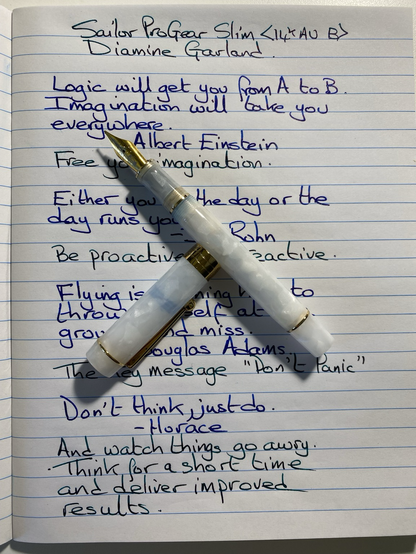 Sailor ProGear Slim <14k AU B>
Diamine Garland.
Logic will get you from A to B.
Imagination will take you
everywhere.
Albert Einstein
Free imagination.
Either you the day or the
day runs you
Rohn
Be proactive eactive.
Flying is to
throw self at
gro nd miss.
ouglas Adams.
The key message "Don't Panic"
Don't think, just do.
-Horace
And watch things go awry.
Think for a short time
and deliver improved
results.